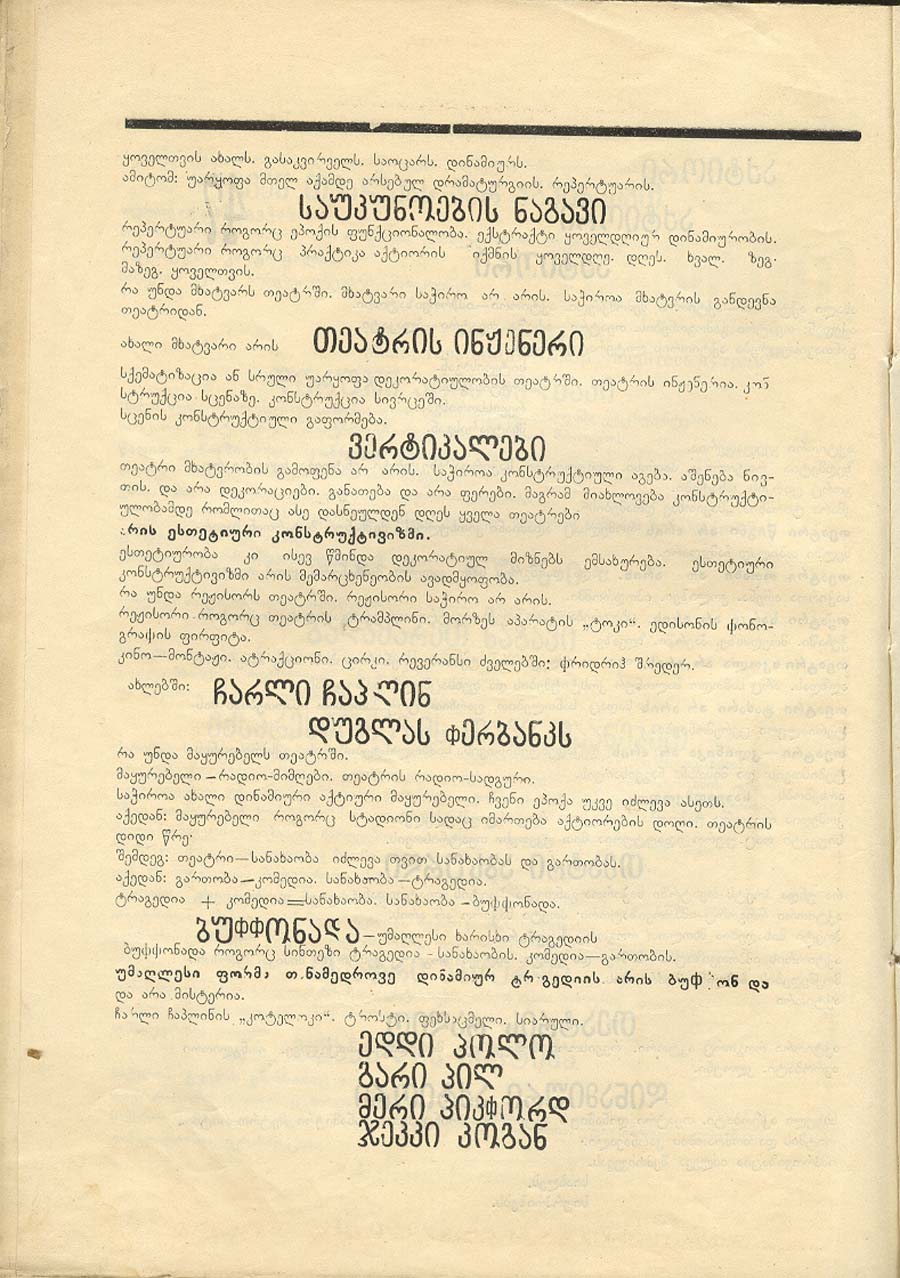 ყოველთვის ახალს. გასაკვირველს. საოცარს. დინამიურს.
ამიტომ: უარყოფა მთელ აქამდე არსებულ დრამატურგიის. რეპერტუარის.
საუკუნოების ნაგავი
რეპერტუარი როგორც ეპოქის ფუნქციონალობა. ექსტრაქტი ყოველდღიურ დინამიურობის.
რეპერტუარი როგორც პრაქტიკა აქტიორის იქმნის ყოველდღე. დღეს. ხვალ. ზეგ.
მაზეგ. ყოველთვის.
რა უნდა მხატვარს თეატრში. მხატვარი საჭირო არ არის. საჭიროა მხატვრის განდევნა
თეატრიდან.
ახალი მხატვარი არის თეატრის ინჟენერი
სქემატიზაცია ან სრული უარყოფა დეკორატიულობის თეატრში. თეატრის ინჟენერია. კონ
სტრუქცია სცენაზე. კონსტრუქცია სივრცეში.
სცენის კონსტრუქტიული გაფორმება.
ვერტიკალები
თეატრი მხატვრობის გამოფენა არ არის. საჭიროა კონსტრუქტიული აგება. აშენება ნივ-
თის. და არა დეკორაციები. განათება და არა ფერები. მაგრამ მიახლოვება კონსტრუქტი-
ულობამდე რომლითაც ასე დასნეულდენ დღეს ყველა თეატრები
არის ესთეტიური კონსტრუქტივიზმი.
ესთეტიურობა კი ისევ წმინდა დეკორატიულ მიზნებს ემსახურება. ესთეტიური
კონსტრუქტივიზმი არის მემარცხენეობის ავადმყოფობა.
რა უნდა რეჟისორს თეატრში. რეჟისორი საჭირო არ არის.
რეჟისორი როგორც თეატრის ტრამპლინი. მორზეს აპარატის „ტოკი“. ედისონის ჶონო-
გრაჶის ფირფიტა.
კინო—მონტაჟი. ატრაქციონი. ცირკი. რევერანსი ძველებში: ჶრიდრიჰ შრედერ.
ახლებში: ჩარლი ჩაპლინ
დუგლას ჶერბანკს
რა უნდა მაყურებელს თეატრში.
მაყურებელი—რადიო-მიმღები. თეატრის რადიო-სადგური.
საჭიროა ახალი დინამიური აქტიური მაყურებელი. ჩვენი ეპოქა უკვე იძლევა ასეთს.
აქედან: მაყურებელი როგორც სტადიონი სადაც იმართება აქტიორების დოღი. თეატრის
დიდი წრე.
შემდეგ: თეატრი—სანახაობა იძლევა თვით სანახაობას და გართობას.
აქედან: გართობა—კომედია. სანახაობა—ტრაგედია.
ტრაგედია + კომედია=სანახაობა. სანახაობა-ბუჶჶონადა.
ბუჶჶონადა—უმაღლესი ხარისხი ტრაგედიის
ბუჶჶონადა როგორც სინთეზი ტრაგედია-სანახაობის. კომედია—გართობის.
უმაღლესი ფორმა თანამედროვე დინამიურ ტრაგედიის არის ბუჶჶონადა
და არა მისტერია.
ჩარლი ჩაპლინის „კოტელოკი“. ტროსტი. ფეხსაცმელი. სიარული.
ედდი პოლო
გარი პილ
მერი პიკჶორდ
ჯეკკი კოგან